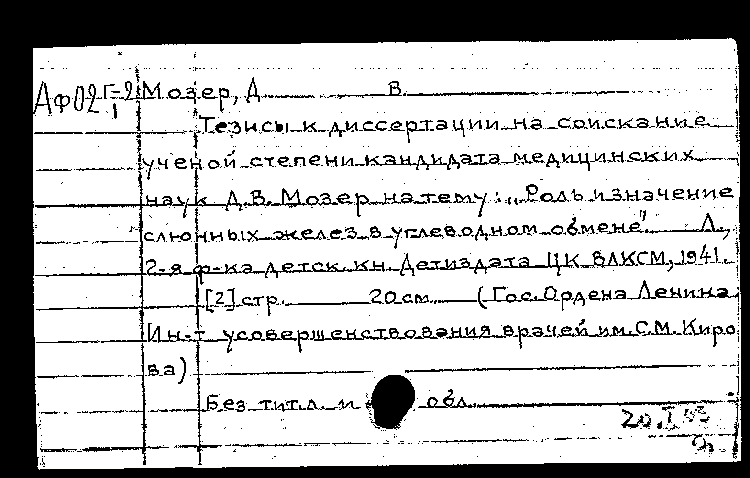 АФ02 Г-2 Мозер, Д В.
1
Тезисы к диссертации на соискание
ученой степени кандидата медицинских
наук Д.В. Мозер на тему: „Роль и значение
слюнных желез в углеводном обмене". Л.,
2-я ф-ка детск. кн. Детиздата ЦК ВЛКСМ, 1941.
[2] стр. 20 см. (Гос. Ордена Ленина
Ин-т усовершенствования врачей им. С.М. Киро
ва)
Без тит. л. и обл.
20.I